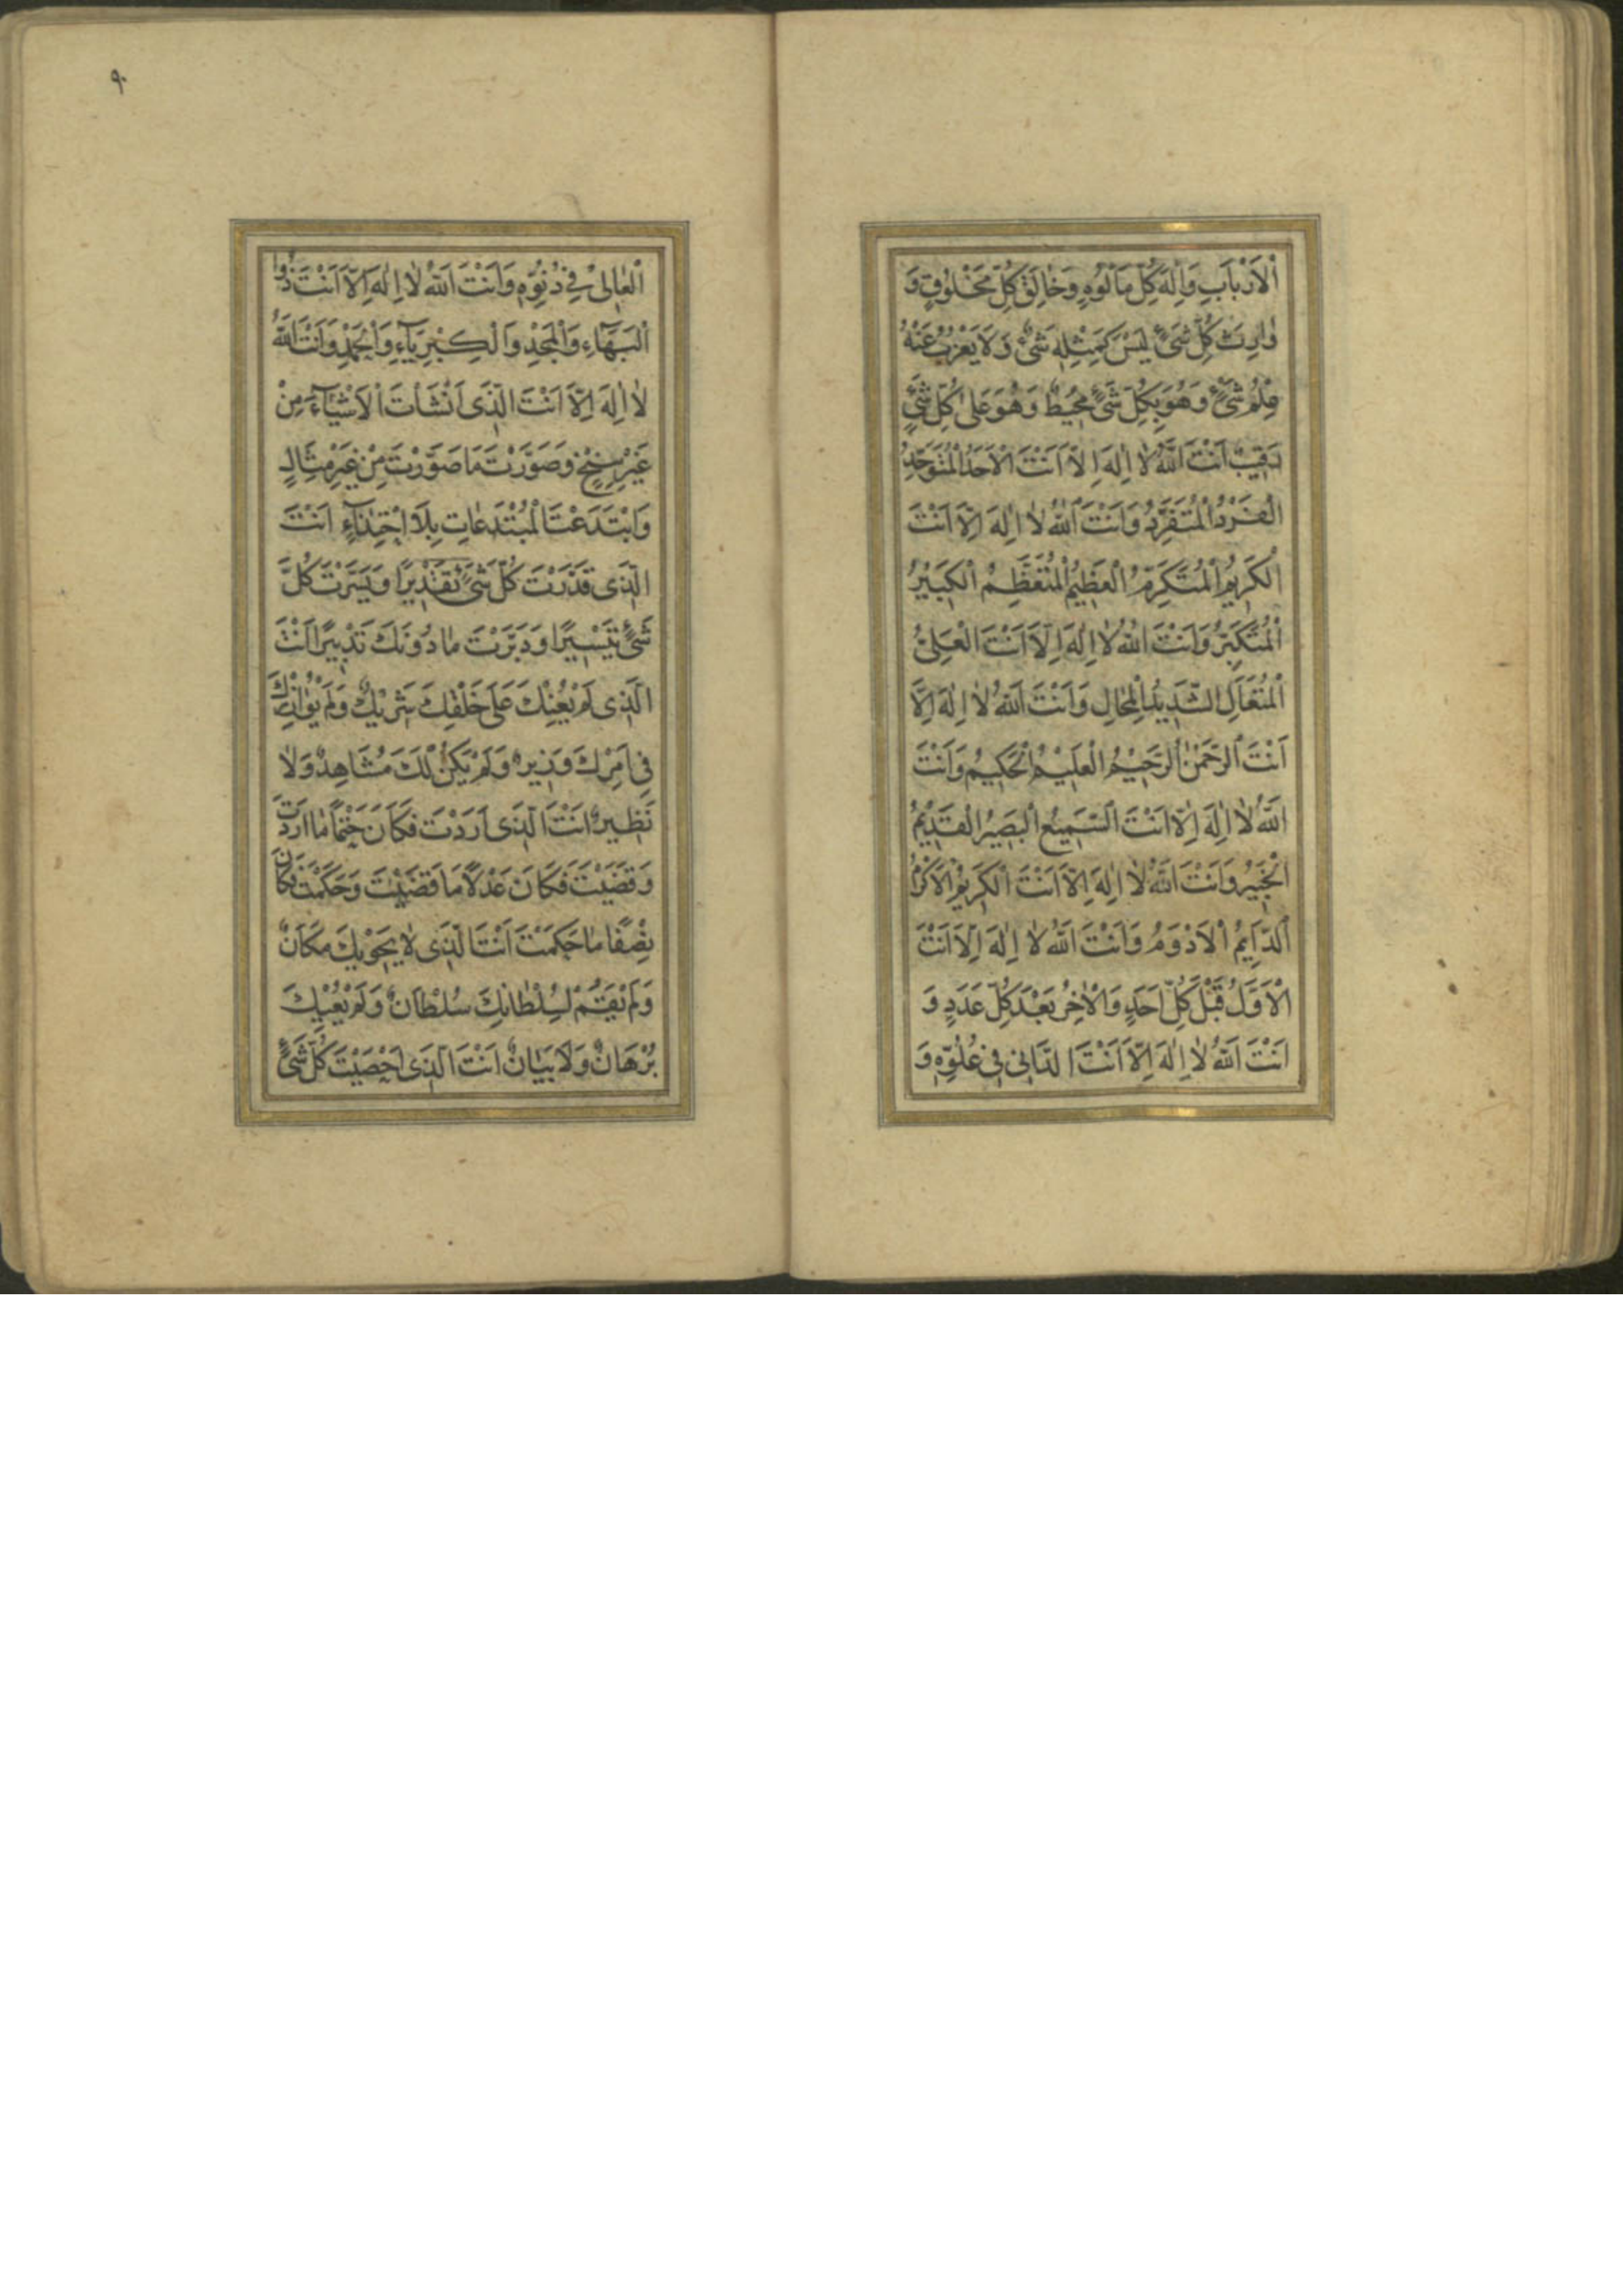 اْلاَرْبٰابِ وَاِلٰهَ كُلِّ مَاْلُوُهٍ وَخٰالِقَ كُلِّ مَخْلُوُقٍ وَ
وٰارِثَ كُلِّ شَىْءٍ لَيْسَ كَمِثْلِهِ شَىْءٌ وَلاَ يَعْزُبُ عَنْهُ
عِلْمُ شَىْءٍ وَهُوَ بِكُلِّ شَىْءٍ مُحِيطٌ وَهُوَ عَلىٰ كُلِّ شَىْءٍ
رَقِيبٌ اَنْتَ اللّٰهُ لاٰ اِلٰهَ اِلاَّ اَنْتَ اْلاَحَدُ الْمُتَوَحِّدُ
الْفَرْدُ الْمُتَفَرِّدُ وَاَنْتَ اللّٰهُ لاٰ اِلٰهَ اِلاَّ اَنْتَ
الْكَرِيُمُ الْمُتَكَرِّمُ الْعَظِيُمُ الْمُتَعَظِّمُ الْكَبِيْرُ
الْمُتَكَبِّرُ وَاَنْتَ اللّٰهُ لاٰ اِلٰهَ اِلاَّ اَنْتَ الْعَلِىُّ
الْمُتَعَالِ الشَّدِيُدُ الْمِحٰالِ وَاَنْتَ اللّٰهُ لاٰ اِلٰهَ اِلاَّ
اَنْتَ الرَّحْمٰنُ الرَّحِيْمُ الْعَلِيْمُ الْحَكِيمُ وَاَنْتَ
اللّٰهُ لاٰ اِلٰهَ اِلاَّ اَنْتَ السَّمِيْعُ الْبَصِيْرُ الْقَدِيْمُ
الْخَبِيْرُ وَاَنْتَ اللّٰهُ لاٰ اِلٰهَ اِلاَّ اَنْتَ الْكَرِيْمُ اْلاَكْرَمُ
الدَّاۤيِمُ اْلاَدْوَمُ وَاَنْتَ اللّٰهُ لاٰ اِلٰهَ اِلاَّ اَنْتَ
اْلاَوَّلُ قَبْلَ كُلِّ اَحَدٍ وَاْلاٰخِرُ بَعْدَ كُلِّ عَدَدٍ وَ
اَنْتَ اللّٰهُ لاٰ اِلٰهَ اِلاَّ اَنْتَ الدَّانِى فِى عُلُوِّهٖ وَ
٩٠
الْعٰالِىْ فِى دُنُوِّهٖ وَاَنْتَ اللّٰهُ لاٰ اِلٰهَ اِلاَّ اَنْتَ ذُوا
الْبَهَاۤءِ وَالْمَجْدِ وَالْكِبْرِيَاۤءِ وَالْحَمْدِ وَاَنْتَ اللّٰهُ
لاٰ اِلٰهَ اِلاَّ اَنْتَ الَّذِى اَنْشَاْتَ اْلاَشْيَاۤءَ مِنْ
غَيْرِ سِنْخٍ وَصَوَّرْتَ مَا صَوَّرْتَ مِنْ غَيْرِ مِثَالٍ
وَابْتَدَعْتَ الْمُبْتَدَعٰاتِ بِلاَ احْتِذٰاۤءٍ اَنْتَ
الَّذِى قَدَّرْتَ كُلَّ شَىْءٍ تَقْدِيْرًا وَيَسَّرْتَ كُلَّ
شَىْءٍ تَيْسِيْرًا وَدَبَّرْتَ مٰا دُوُنَكَ تَدْبِيرًا اَنْتَ
الَّذِى لَمْ يُعِنْكَ عَلىٰ خَلْقِكَ شَرِيْكٌ وَلَمْ يُوٰازِرْكَ
فِى اَمْرِكَ وَزِيرٌ وَلَمْ يَكُنْ لَكَ مُشَاهِدٌ وَلاٰ
نَظِيرٌ اَنْتَ الَّذِى اَرَدْتَ فَكَانَ حَتْمًا مٰا اَرَدْتَ
وَقَضَيْتَ فَكَانَ عَدْلاً مَا قَضَيْتَ وَحَكَمْتَ فَكَانَ
نِصْفًا مٰا حَكَمْتَ اَنْتَ الَّذِى لاٰ يَحْوِيْكَ مَكَانٌ
وَلَمْ يَقُمْ لِسُلْطٰانِكَ سُلْطَانٌ وَلَمْ يُعْيِكَ
بُرْهَانٌ وَلاَ بَيَانٌ اَنْتَ الَّذِى اَحْصَيْتَ كُلَّ شَىْءٍ